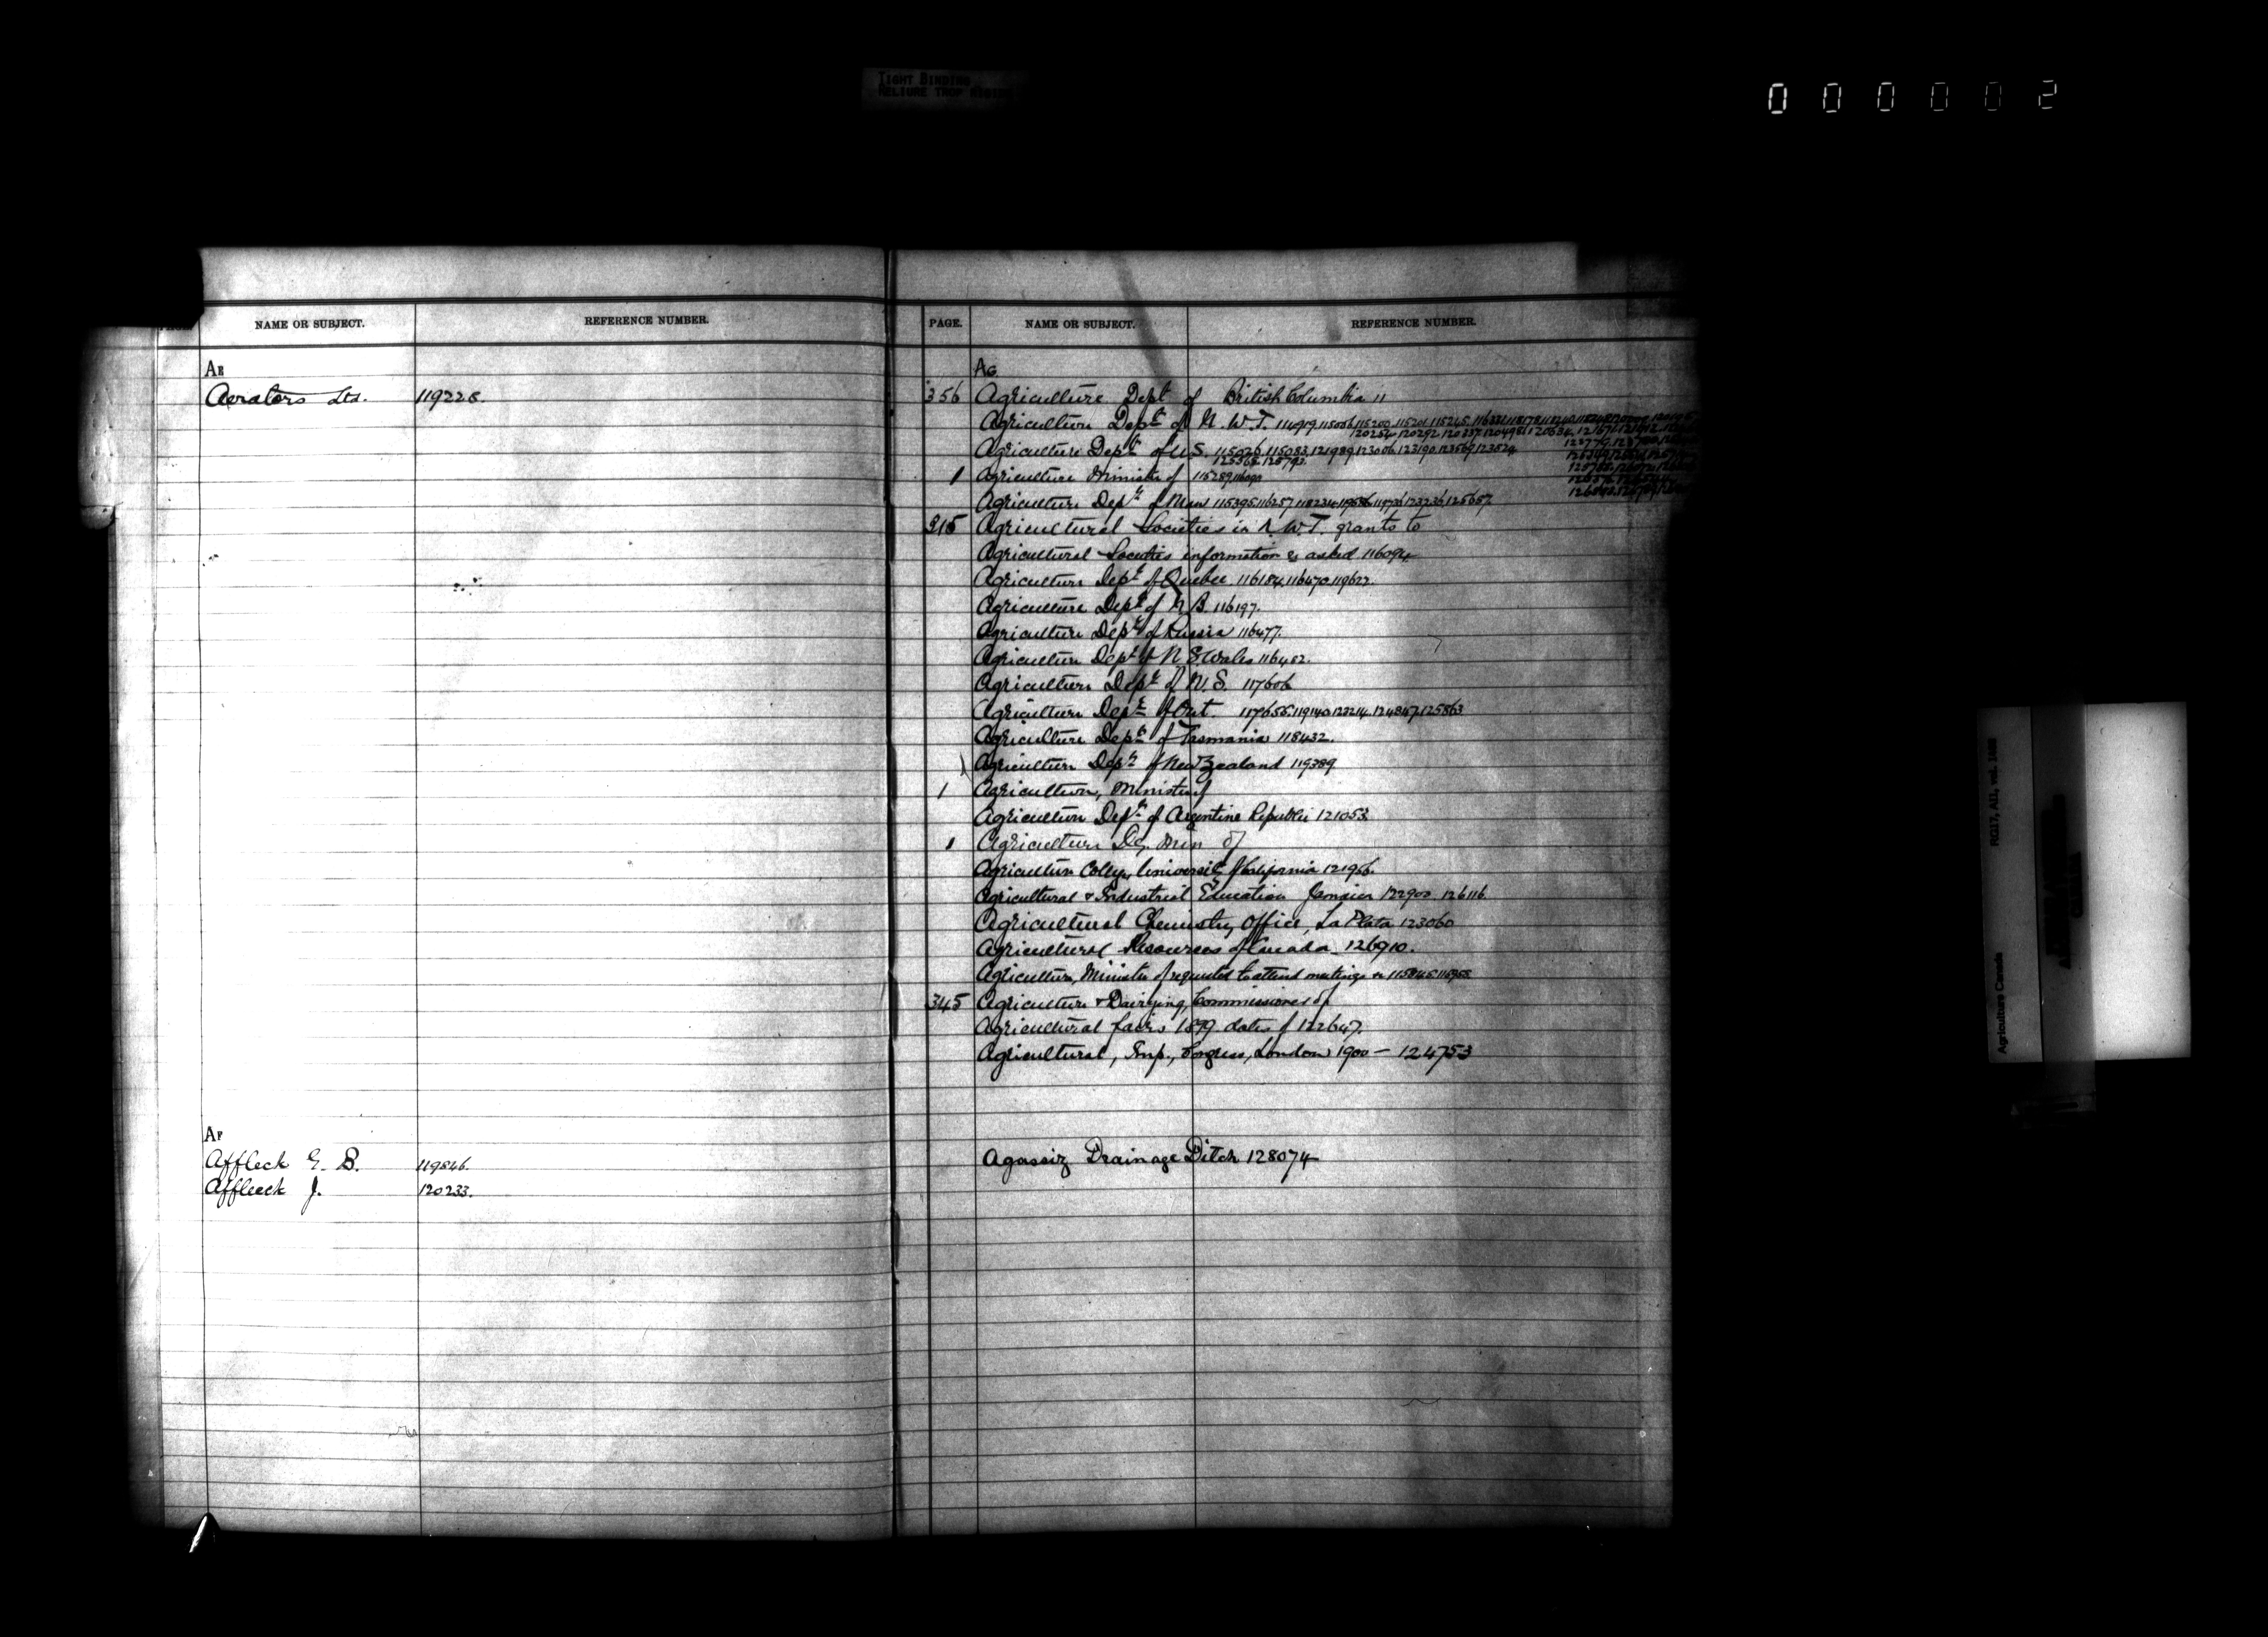 TIGHT BINDING
RELIURE TROP
000002
NAME OR SUBJECT. REFERENCE NUMBER.
AE
Aerators Ltd. 119228.
AF
Affleck G. B. 119846.
Affleck J. 120233.
PAGE. NAME OR SUBJECT. REFERENCE NUMBER.
AG
356 Agriculture Dept of British Columbia 11
Agriculture Dept of N.W.T. 114919.115056.115200.115201.115245.
120254.120292.120337.120498.120634.
Agriculture Dept of U.S. 115026.115083.121989.123006.123190.123569.123524
125568.125792.
1 Agriculture Minister of 115289.116090
Agriculture Dept of Man 115395.116257.118234.119586.119736.123236.125657.
315 Agricultural Societies in N.W.T. grants to
Agricultural Societies information as asked 116094.
Agriculture Dept of Quebec. 116184.116470.119622.
Agriculture Dept of N.B. 116197.
Agriculture Dept of Russia 116477.
Agriculture Dept of N.S. Wales 116482.
Agriculture Dept of N.S. 117606
Agriculture Dept of Ont. 117655.119140.123214.124847.125863
Agriculture Dept of Tasmania 118432.
Agriculture Dept of New Zealand 119389
1 Agriculture, Minister of
Agriculture Dept of Argentine Republic 121053.
1 Agriculture Dy. Min of
Agriculture College, University of California 121956.
Agricultural & Industrial Education Jamaica 122902. 126116.
Agricultural Chemistry Office, La Plata 123060
Agricultural Resources of Canada 126910.
Agriculture, Minister of requested to attend meetings &
345 Agriculture & Dairying, Commissioner of
Agricultural fairs 1899 dates of 122647.
Agricultural, Imp., Congress, London 1900 — 124753
Agassiz Drainage Ditch 128074
Agriculture Canada RG17, AII, vol.